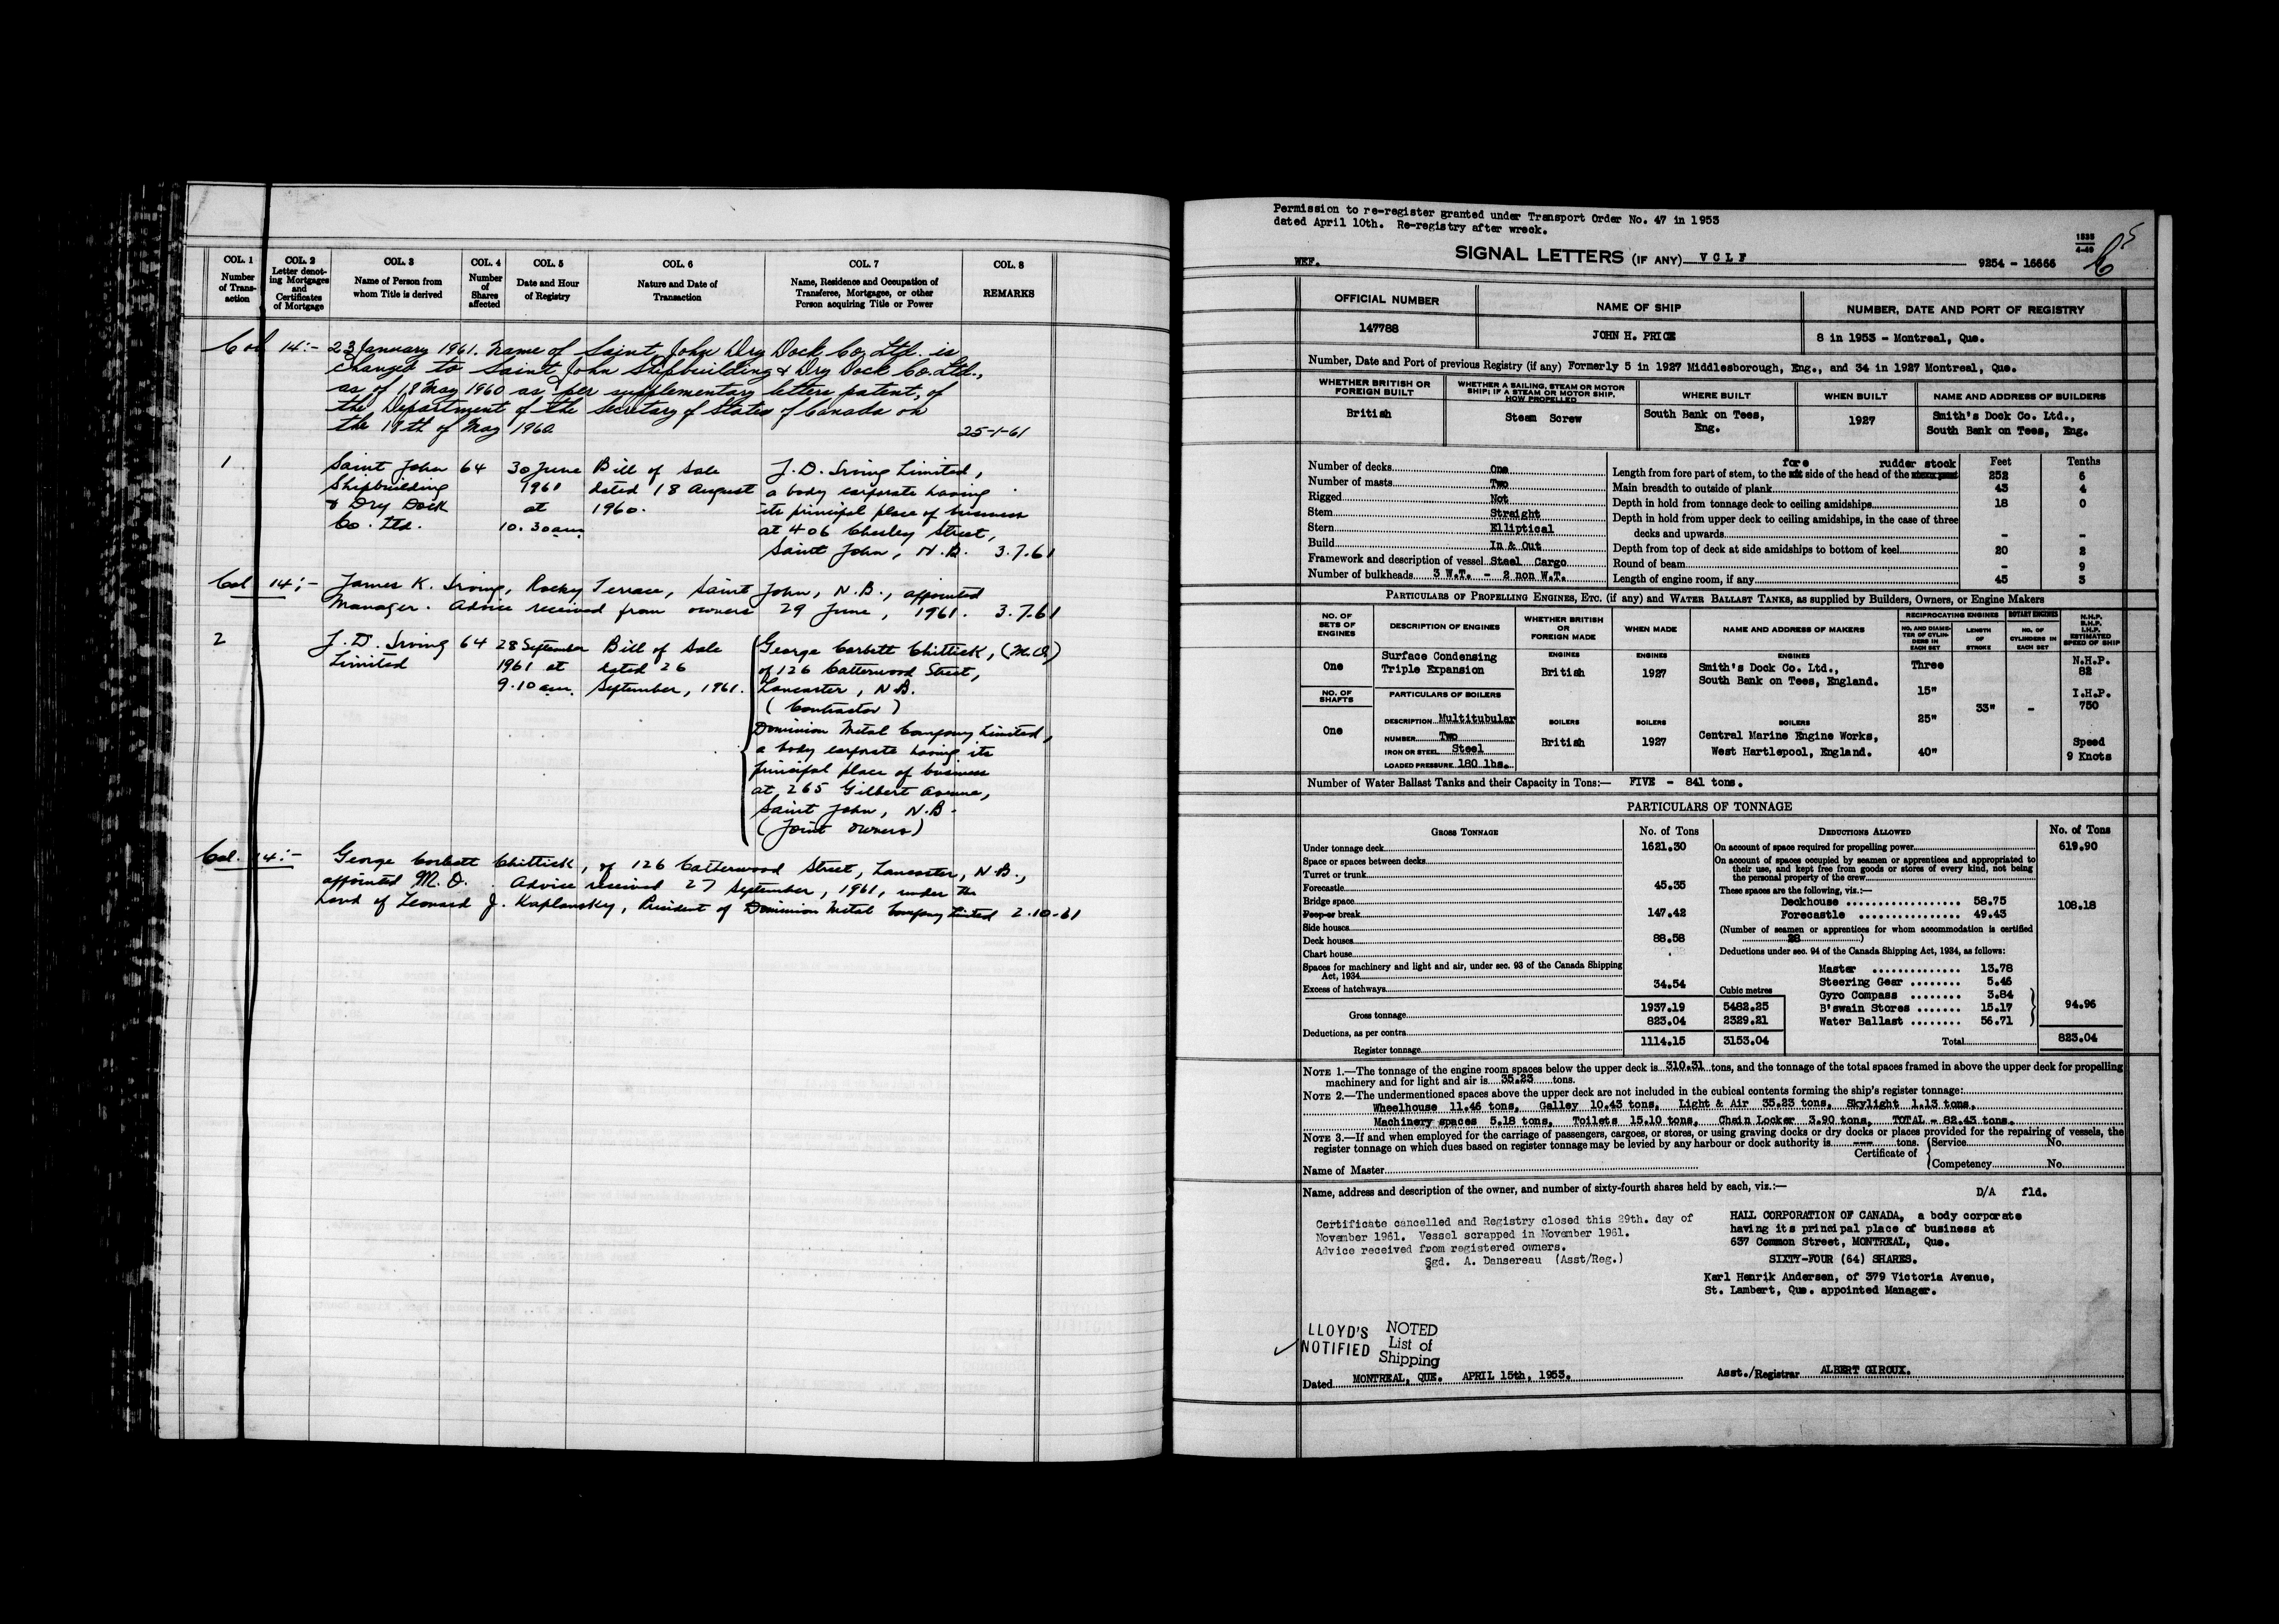 COL. 1
Number
of Trans-
action
COL. 2
Letter denot-
ing Mortgages
and
Certificates
of Mortgage
COL. 3
Name of Person from
whom Title is derived
COL. 4
Number
of
Shares
affected
COL. 5
Date and Hour
of Registry
COL. 6
Nature and Date of
Transaction
COL. 7
Name, Residence and Occupation of
Transferee, Mortgagee, or other
Person acquiring Title or Power
COL. 8
REMARKS
Col 14:- 23 January 1961. Name of Saint John Dry Dock Co. Ltd. is
changed to Saint John Shipbuilding & Dry Dock Co. Ltd.,
as of 18 May 1960 as per supplementary letters patent, of
the Department of the Secretary of State of Canada on
the 18th of May 1960
25-1-61
1
Saint John
Shipbuilding
& Dry Dock
Co. Ltd.
64
30 June
1961
at
10.30 am
Bill of Sale
dated 18 August
1960.
J. D. Irving Limited,
a body corporate having
its principal place of business
at 406 Chesley Street,
Saint John, N.B. 3.7.61
Col 14:- James K. Irving, Rocky Terrace, Saint John, N.B., appointed
Manager. Advice received from owners 29 June, 1961. 3.7.61
2
J. D. Irving
Limited
64
28 September
1961 at
9.10 am.
Bill of Sale
dated 26
September, 1961.
George Corbett Chittick, (M.O)
of 126 Catherwood Street,
Lancaster, N.B.
(Contractor)
Dominion Metal Company Limited,
a body corporate having its
principal place of business
at 265 Gilbert Avenue,
Saint John, N.B.
(Joint owners)
Col. 14:- George Corbett Chittick, of 126 Catherwood Street, Lancaster, N.B.,
appointed M.O. Advice received 27 September, 1961, under the
hand of Leonard J. Kaplansky, President of Dominion Metal Company Limited 2-10-61
Permission to re-register granted under Transport Order No. 47 in 1953
dated April 10th. Re-registry after wreck.
1535
4-49
WEF.
SIGNAL LETTERS (IF ANY) VCLF
9254 - 16666
OFFICIAL NUMBER
NAME OF SHIP
NUMBER, DATE AND PORT OF REGISTRY
147788
JOHN H. PRICE
8 in 1953 - Montreal, Que.
Number, Date and Port of previous Registry (if any) Formerly 5 in 1927 Middlesborough, Eng., and 34 in 1927 Montreal, Que.
WHETHER BRITISH OR
FOREIGN BUILT
WHETHER A SAILING, STEAM OR MOTOR
SHIP; IF A STEAM OR MOTOR SHIP,
HOW PROPELLED
WHERE BUILT
WHEN BUILT
NAME AND ADDRESS OF BUILDERS
British
Steam Screw
South Bank on Tees,
Eng.
1927
Smith's Dock Co. Ltd.,
South Bank on Tees, Eng.
Number of decks One
Number of masts Two
Rigged Not
Stem Straight
Stern Elliptical
Build In & Out
Framework and description of vessel Steel Cargo
Number of bulkheads 3 W.T. - 2 non W.T.
Feet Tenths
fore rudder stock
Length from fore part of stem, to the side of the head of the 252 6
Main breadth to outside of plank 43 4
Depth in hold from tonnage deck to ceiling amidships 18 0
Depth in hold from upper deck to ceiling amidships, in the case of three
decks and upwards - -
Depth from top of deck at side amidships to bottom of keel 20 2
Round of beam - 9
Length of engine room, if any 45 3
PARTICULARS OF PROPELLING ENGINES, ETC. (if any) and WATER BALLAST TANKS, as supplied by Builders, Owners, or Engine Makers
NO. OF
SETS OF
ENGINES
DESCRIPTION OF ENGINES
WHETHER BRITISH
OR
FOREIGN MADE
WHEN MADE
NAME AND ADDRESS OF MAKERS
RECIPROCATING ENGINES
NO. AND DIAME-
TER OF CYLIN-
DERS IN
EACH SET
LENGTH
OF
STROKE
ROTARY ENGINES
NO. OF
CYLINDERS IN
EACH SET
N.H.P.
B.H.P.
I.H.P.
ESTIMATED
SPEED OF SHIP
One
Surface Condensing
Triple Expansion
ENGINES
British
ENGINES
1927
ENGINES
Smith's Dock Co. Ltd.,
South Bank on Tees, England.
Three
15"
25"
40"
33"
-
N.H.P.
82
I.H.P.
750
Speed
9 Knots
NO. OF
SHAFTS
One
PARTICULARS OF BOILERS
DESCRIPTION Multitubular
NUMBER Two
IRON OR STEEL Steel
LOADED PRESSURE 180 lbs.
BOILERS
British
BOILERS
1927
BOILERS
Central Marine Engine Works,
West Hartlepool, England.
Number of Water Ballast Tanks and their Capacity in Tons:— FIVE - 841 tons.
PARTICULARS OF TONNAGE
GROSS TONNAGE
No. of Tons
Under tonnage deck 1621.30
Space or spaces between decks
Turret or trunk
Forecastle 45.35
Bridge space
Poop or break 147.42
Side houses
Deck houses 88.58
Chart house
Spaces for machinery and light and air, under sec. 93 of the Canada Shipping
Act, 1934
Excess of hatchways 34.54
Cubic metres
Gross tonnage 1937.19 5482.25
Deductions, as per contra 823.04 2329.21
Register tonnage 1114.15 3153.04
DEDUCTIONS ALLOWED
No. of Tons
On account of space required for propelling power 619.90
On account of spaces occupied by seamen or apprentices and appropriated to
their use, and kept free from goods or stores of every kind, not being
the personal property of the crew
These spaces are the following, viz.:—
Deckhouse 58.75
Forecastle 49.43
108.18
(Number of seamen or apprentices for whom accommodation is certified
28 )
Deductions under sec. 94 of the Canada Shipping Act, 1934, as follows:
Master 13.78
Steering Gear 5.46
Gyro Compass 3.84
B'swain Stores 15.17
Water Ballast 56.71
94.96
Total 823.04
NOTE 1.—The tonnage of the engine room spaces below the upper deck is 310.31 tons, and the tonnage of the total spaces framed in above the upper deck for propelling
machinery and for light and air is 35.23 tons.
NOTE 2.—The undermentioned spaces above the upper deck are not included in the cubical contents forming the ship's register tonnage:
Wheelhouse 11.46 tons, Galley 10.43 tons, Light & Air 35.23 tons, Skylight 1.13 tons,
Machinery spaces 5.18 tons, Toilets 15.10 tons, Chain Locker 3.90 tons, TOTAL - 82.43 tons.
NOTE 3.—If and when employed for the carriage of passengers, cargoes, or stores, or using graving docks or dry docks or places provided for the repairing of vessels, the
register tonnage on which dues based on register tonnage may be levied by any harbour or dock authority is --- tons.
Certificate of
Service No.
Competency No.
Name of Master
Name, address and description of the owner, and number of sixty-fourth shares held by each, viz.:—
D/A fld.
Certificate cancelled and Registry closed this 29th. day of
November 1961. Vessel scrapped in November 1961.
Advice received from registered owners.
Sgd. A. Dansereau (Asst/Reg.)
HALL CORPORATION OF CANADA, a body corporate
having its principal place of business at
637 Common Street, MONTREAL, Que.
SIXTY-FOUR (64) SHARES.
Karl Henrik Andersen, of 379 Victoria Avenue,
St. Lambert, Que. appointed Manager.
LLOYD'S
NOTIFIED
NOTED
List of
Shipping
Dated MONTREAL, QUE. APRIL 15th, 1953.
Asst./Registrar ALBERT GIROUX.